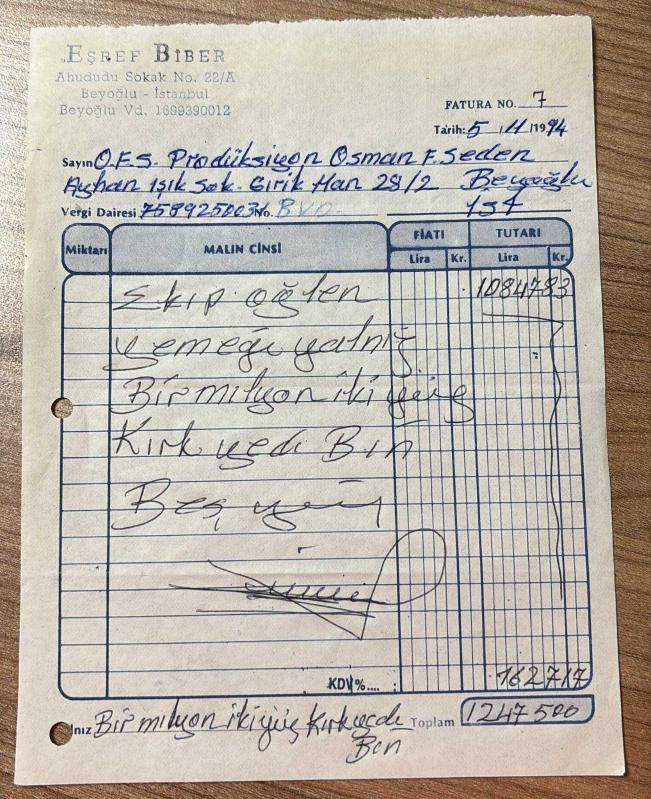 EŞREF BİBER
Ahududu Sokak No. 22/A
Beyoğlu - İstanbul
Beyoğlu Vd. 1699390012
FATURA NO. 7
Tarih: 5 / 4 / 1994
Sayın O.F.S. Prodüksiyon Osman F. Seden
Ayhan Işık Sok. Girik Han 28/2 Beyoğlu
Vergi Dairesi 7589250031 No. B.V.D. İST
Miktarı MALIN CİNSİ FİATI TUTARI
Lira Kr. Lira Kr.
Ekip öğlen 1084783
yemeği yalnız
Bir milyon iki yüz
Kırk yedi Bin
Beş yüz
KDV %.... : 162717
lnız Bir milyon iki yüz Kırk yedi Toplam 1247500
Bin